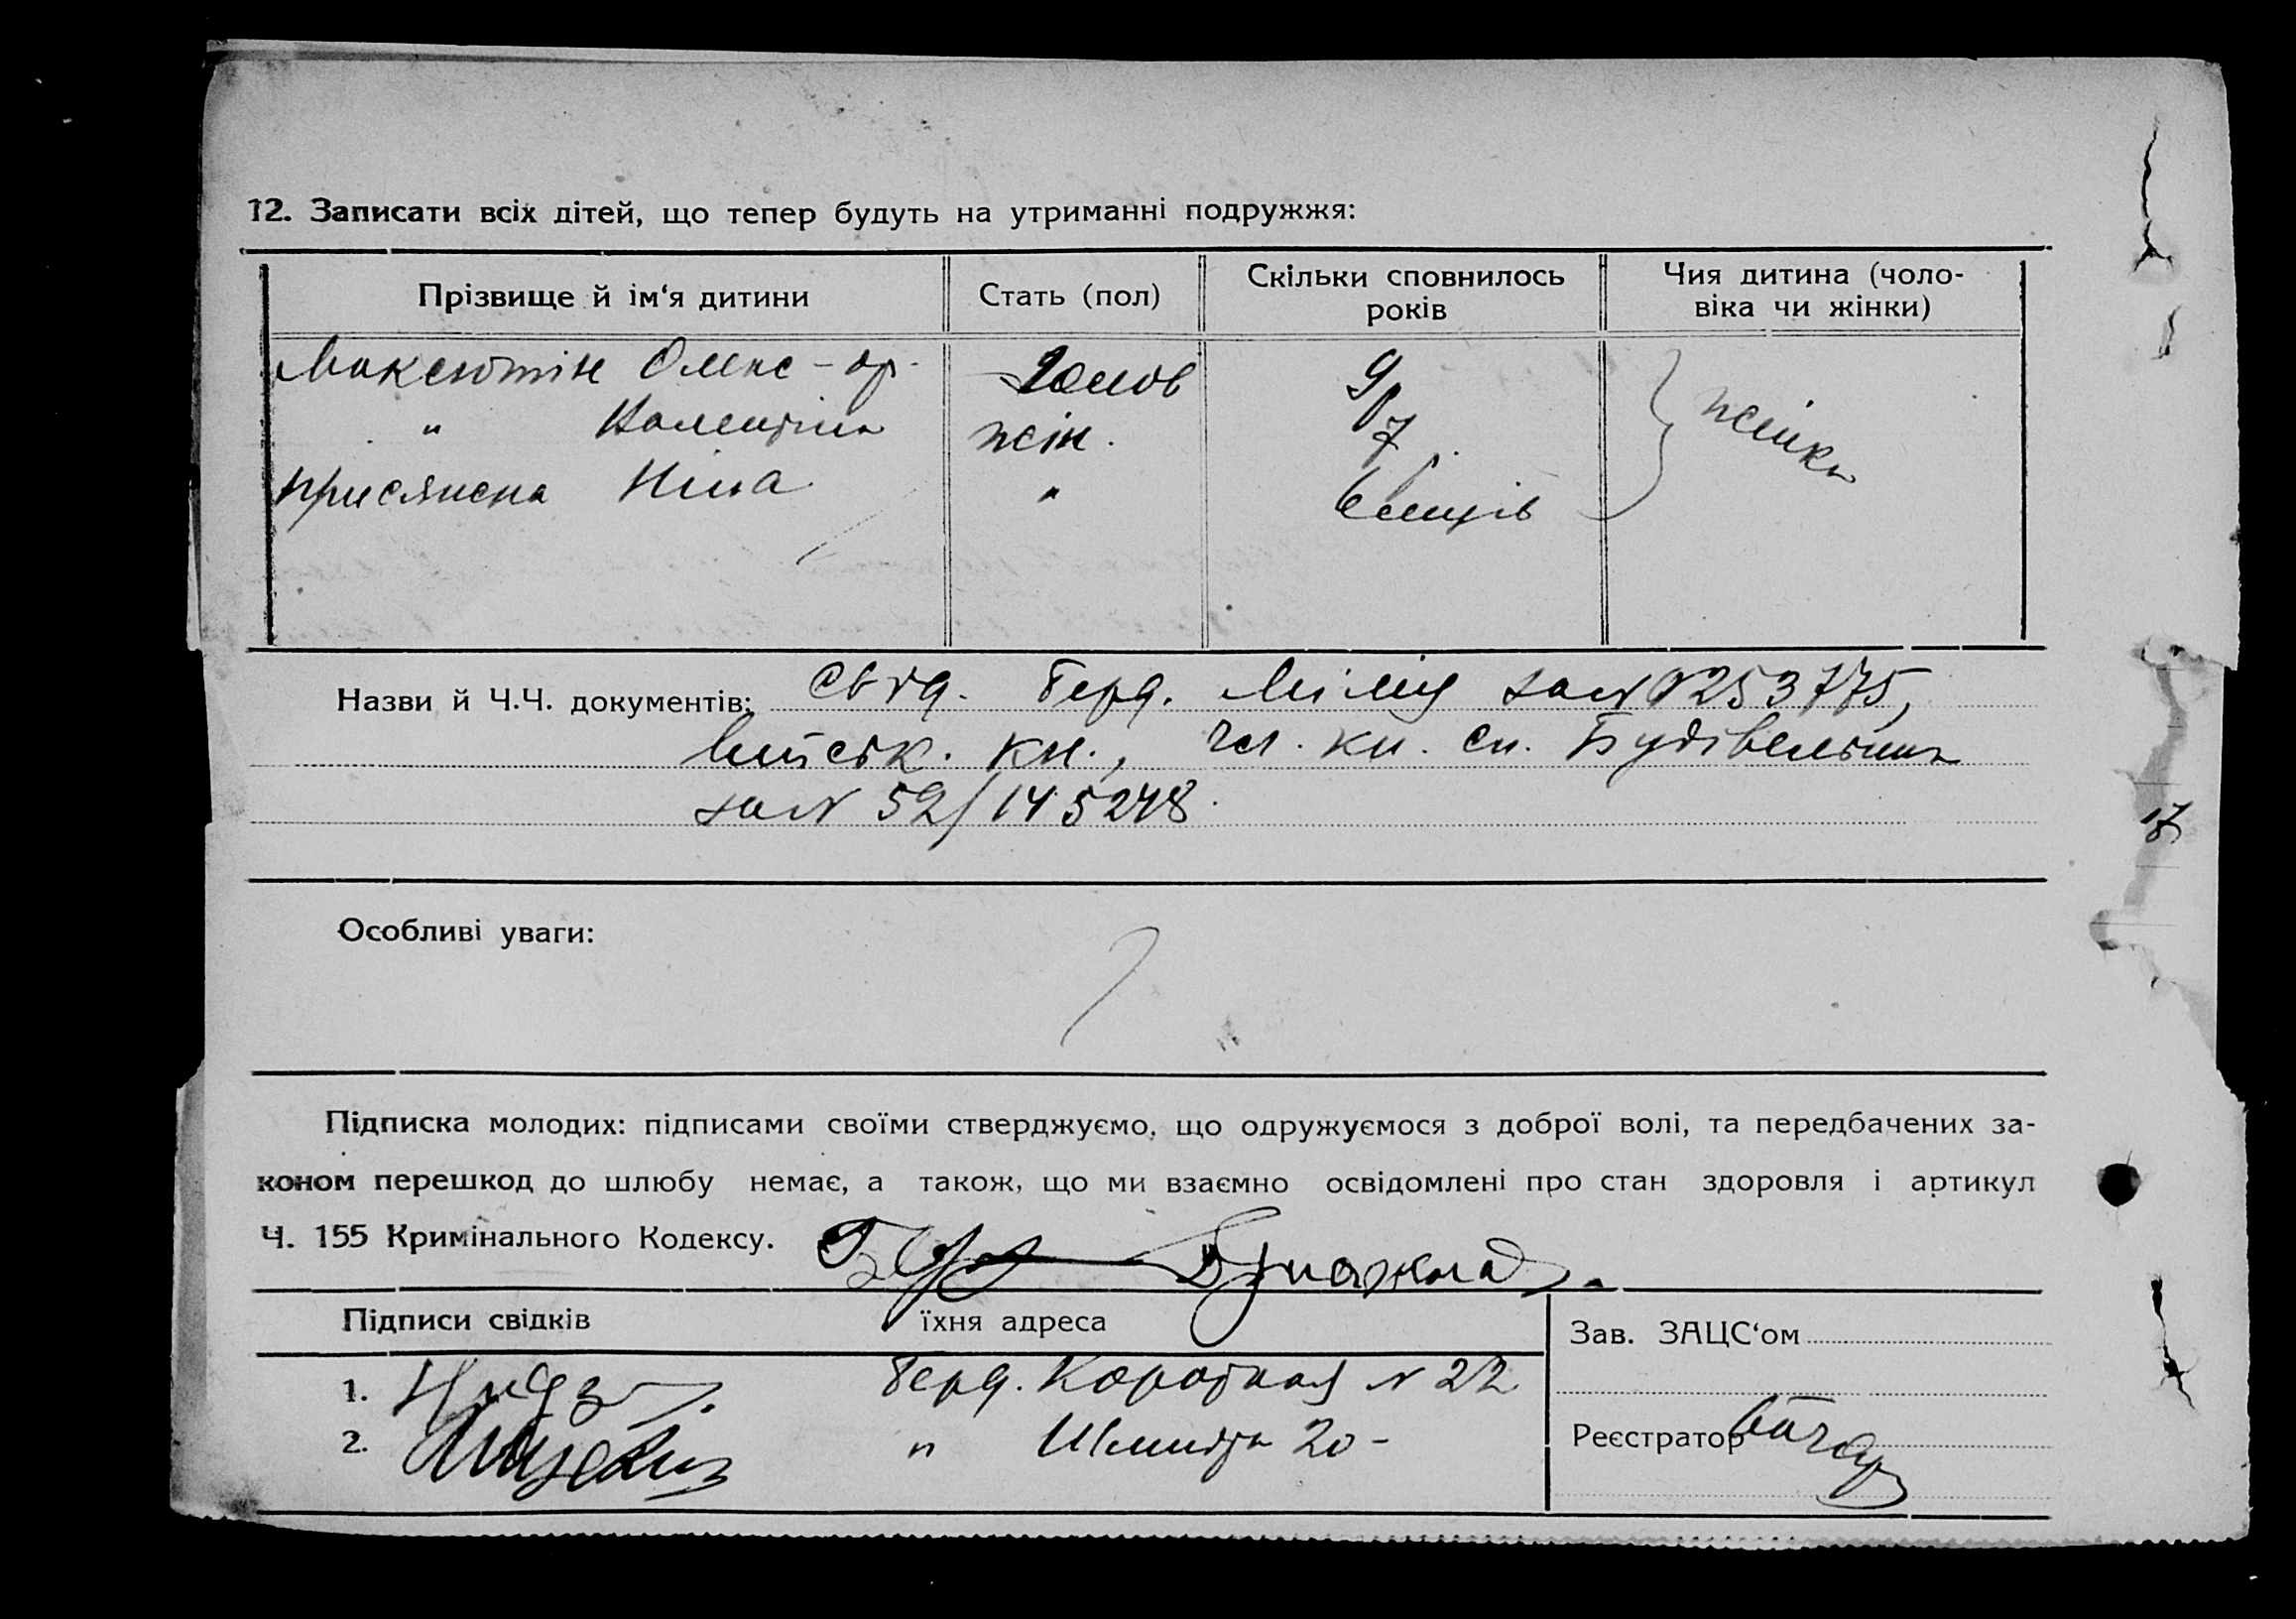 12. Записати всіх дітей, що тепер будуть на утриманні подружжя:
Прізвище й ім‘я дитини Стать (пол) Скільки сповнилось років Чия дитина (чоловіка чи жінки)
Максютін Олекс-др. Чолов 9 р
" Валентина жін. 7 жінки
Присяжна Ніна " 6 місяців
Назви й Ч.Ч. документів: Свід. Берд. Міліц за № 253775,
Військ. кн., чл. кн. сп. Будівельник
за № 52/145248.
Особливі уваги:
Підписка молодих: підписами своїми стверджуємо, що одружуємося з доброї волі, та передбачених за-
коном перешкод до шлюбу немає, а також, що ми взаємно освідомлені про стан здоровля і артикул
Ч. 155 Кримінального Кодексу.
Підписи свідків їхня адреса
Зав. ЗАЦС‘ом
1. Берд. Коротка № 22
2. " Шмидта 20 -
Реєстратор
17